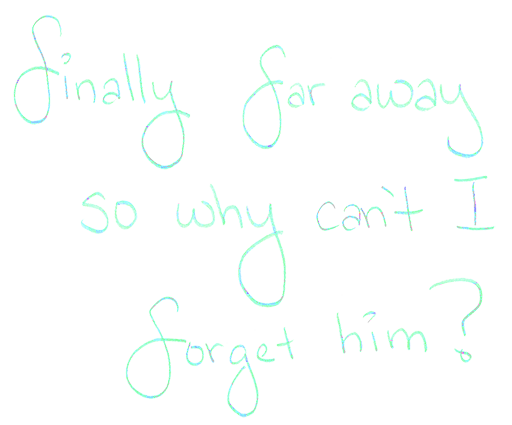 finally far away
so why can't I
forget him?